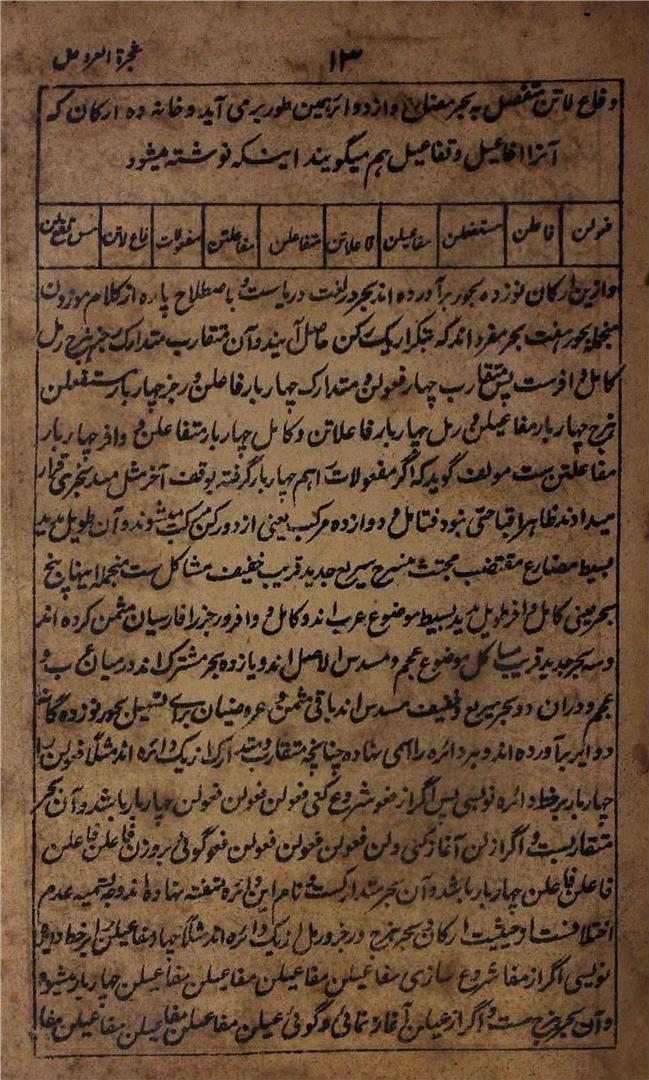 شجرة العروض
۱۳
و فاع لاتن منفصل به بحر مضارع و از دوائر همین طور بر می آید و خانه ده ارکان که
آنرا افاعیل و تفاعیل هم میگویند اینکه نوشته میشود
فعولن فاعلن مستفعلن مفاعیلن فاعلاتن متفاعلن مفاعلتن مفعولات فاع لاتن مس تفع لن
و ازین ارکان نوزده بحور برآورده اند بحر در لغت دریاست و باصطلاح پاره از کلام موزون
منجمله بحور هفت بحر مفرد اند که بتکرار یک رکن حاصل آیند و آن متقارب متدارک رجز هزج رمل
کامل وافر ست پس متقارب چهار بار فعولن و متدارک چهار بار فاعلن و رجز چهار بار مستفعلن
هزج چهار بار مفاعیلن و رمل چهار بار فاعلاتن و کامل چهار بار متفاعلن و وافر چهار بار
مفاعلتن ست مولف گوید که اگر مفعولات را هم چهار بار گرفته بوقف آخر مثل مسدس بحری قرار
میدادند ظاهرا قباحتی نبود فتامل و دوازده مرکب یعنی از دو رکن مرکب میشوند و آن طویل مدید
بسیط مضارع مقتضب مجتث منسرح سریع جدید قریب خفیف مشاکل ست منجمله اینها پنج
بحر یعنی کامل و وافر طویل مدید بسیط موضوع عرب اند و کامل و وافر را فارسیان مثمن کرده اند
و سه بحر جدید قریب مشاکل موضوع عجم و مسدس الاصل اند و یازده بحر مشترک اند در میان عرب و
عجم و دران دو بحر سریع و خفیف مسدس اند باقی مثمن و عروضیان برای تسهیل بحور نوزده گانه
دوایر برآورده اند و هر دائره را اسمی نهاده چنانچه متقارب و متدارک از یک دائره اند مثلا فعولن را
چهار بار بر خط دائره نویسی پس اگر از فعو شروع کنی فعولن فعولن فعولن فعولن چهار بار باشد و آن بحر
متقارب ست و اگر از لن آغاز کنی و لن فعولن فعولن فعولن فعو گوئی بروزن فاعلن فاعلن
فاعلن فاعلن چهار بار باشد و آن بحر متدارک ست و نام این دائره متفقه نهاده اند وجه تسمیه عدم
اختلاف ست از حیثیت ارکان و بحر هزج و رجز و رمل از یک دائره اند مثلا چهار مفاعیلن را بر خط دائره
نویسی اگر از مفا شروع سازی مفاعیلن مفاعیلن مفاعیلن مفاعیلن چهار بار میشود
و آن بحر هزج ست و اگر از عیلن آغاز نمائی و گوئی عیلن مفاعیلن مفاعیلن مفاعیلن مفا